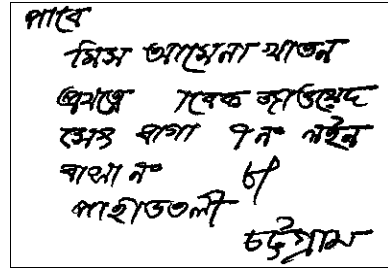 পাবে
মিস আমেনা খাতুন
প্রযত্নে জাওয়েদ
বাগা ৭ নং লইন
বাসা নং ৮
পাহাড়তলী
চট্টগ্রাম